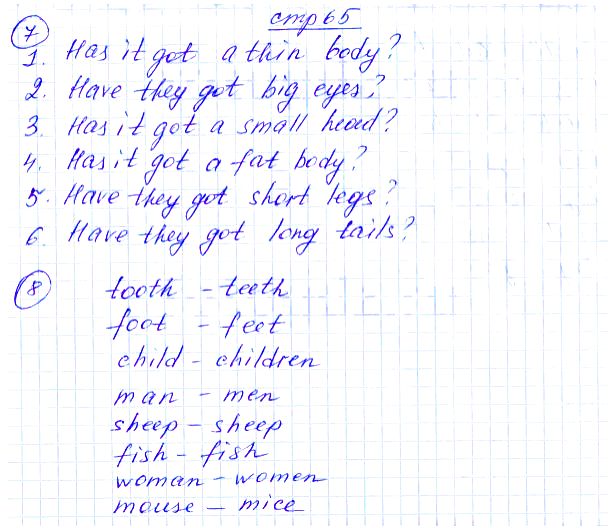 стр 65
7
1. Has it got a thin body?
2. Have they got big eyes?
3. Has it got a small head?
4. Has it got a fat body?
5. Have they got short legs?
6. Have they got long tails?
8 tooth - teeth
foot - feet
child - children
man - men
sheep - sheep
fish - fish
woman - women
mouse - mice